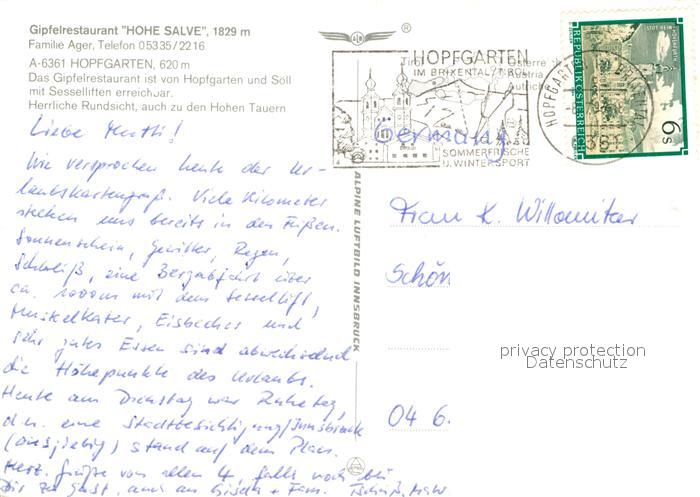 Gipfelrestaurant "HOHE SALVE", 1829 m
Familie Ager, Telefon 05335/2216
A-6361 HOPFGARTEN, 620 m
Das Gipfelrestaurant ist von Hopfgarten und Söll
mit Sesselliften erreichbar.
Herrliche Rundsicht, auch zu den Hohen Tauern
Liebe Mutti!
Wie versprochen heute der Ur-
laubskartengruß. Viele Kilometer
stecken uns bereits in den Füßen.
Sonnenschein, Gewitter, Regen,
Schweiß, eine Bergabfahrt über
ca. 1000m mit dem Sessellift,
Muskelkater, Eisbecher und
sehr gutes Essen sind abwechselnd
die Höhepunkte des Urlaubs.
Heute am Dienstag war Ruhetag,
d.h. eine Stadtbesichtigung/Innsbruck
stand auf dem Plan.
Herz. Grüße von allen 4, falls noch bei
Dir zu Gast, auch an + Fam.
HOPFGARTEN
IM BRIXENTAL/TIROL
SOMMERFRISCHE
U. WINTERSPORT
Tirol
Österre
Austria
Autriche
Germany
HOPFGARTEN
REPUBLIK ÖSTERREICH
6 S
ALPINE LUFTBILD INNSBRUCK
Frau K. Willomitzer
Schön
04 6.
privacy protection
Datenschutz